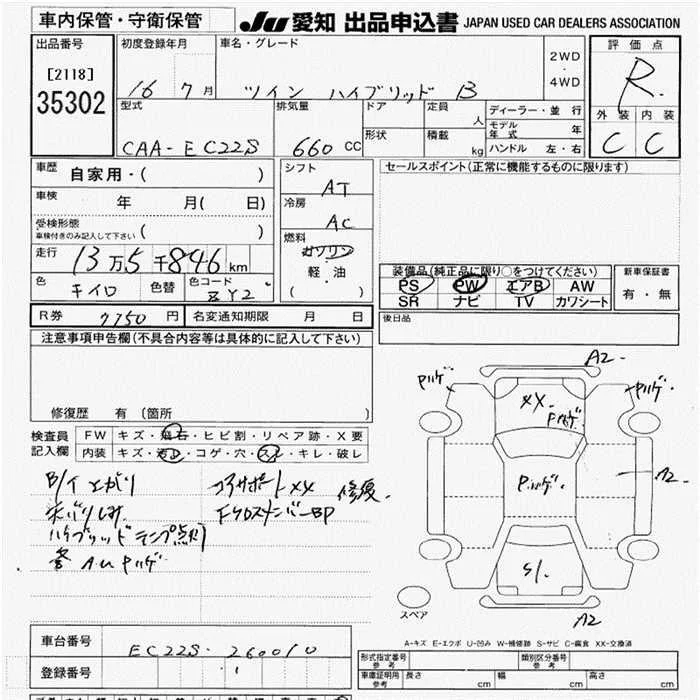 車内保管・守衛保管
JU 愛知 出品申込書 JAPAN USED CAR DEALERS ASSOCIATION
出品番号
[2118]
35302
初度登録年月
16 7月
車名・グレード
ツイン ハイブリッド B
2WD
・
4WD
評価点
R
外装 内装
C C
型式
CAA-EC22S
排気量
660 CC
ドア
形状
定員 人
積載 kg
ディーラー・並行
モデル年式 年
ハンドル 左・右
車歴
自家用・( )
車検
年 月( 日)
受検形態
車検付きのみ記入して下さい ( )
走行
13万5千846km
色
キイロ
色替
色コード
ZY2
シフト
AT
冷房
AC
燃料
ガソリン
・
軽 油
( )
セールスポイント(正常に機能するものに限ります)
装備品(純正品に限り○をつけてください)
PS PW エアB AW
SR ナビ TV カワシート
新車保証書
有・無
R券 7750 円
名変通知期限 月 日
後日品
注意事項申告欄(不具合内容等は具体的に記入して下さい)
修復歴 有 (箇所 )
検査員記入欄
FW キズ・飛石・ヒビ割・リペア跡・X要
内装 キズ・汚れ・コゲ・穴・スレ・キレ・破レ
コアサポートXX 修復
ハイブリッドランプ点灯
A2
Pハゲ
XX
Pハゲ
Pハゲ
Pハゲ
A2
S1
A2
スペア
A-キズ E-エクボ U-凹み W-補修跡 S-サビ C-腐食 XX-交換済
車台番号
EC22S-260010
登録番号
形式指定番号 参考
類別区分番号 参考
車庫証明用 参考 長さ cm 幅 cm 高さ cm